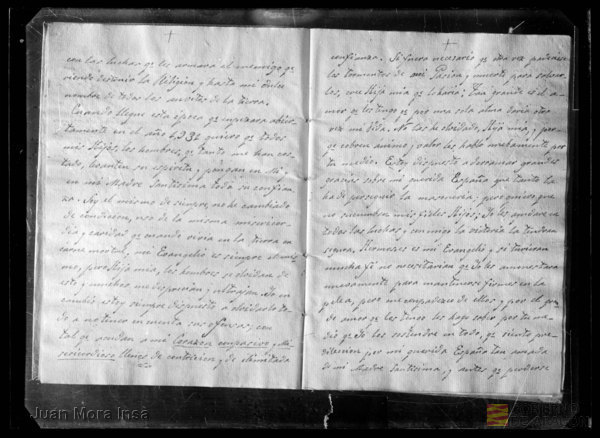 con las luchas qe les armará el enemigo qe
riendo destruir la Religion y hasta mi dulce
nombre de todos los ambitos de la tierra.
Cuando llegue esta época qe empezara abier
tamente en el año 1932 quiero qe todos
mis Hijos, los hombres, qe tanto me han cos
tado, levanten su espiritu, pongan en Mi,
en mi Madre Santisima toda su confian
za. Soy el mismo de siempre, no he cambiado
de condicion, uso de la misma misericor
dia, y caridad qe cuando vivia en la tierra en
carne mortal, mi Evangelio es siempre el mis
mo, pero Hija mia, los hombres se olvidan de
esto, y muchos me desprecian, y ultrajan. Yo en
cambio estoy siempre dispuesto a olvidarlo to
do a no tener en cuenta sus ofensas, con
tal qe acudan a mi Corazon compasivo y Mi
sericordioso llenos de contricion, y de ilimitada
confianza. Si fuera necesario qe otra vez padeciese
los tormentos de mi Pasion, y muerte para salvar
los, cree Hija mia qe lo haria; Tan grande es el a
mor qe les tengo qe por una sola alma daria otra
vez mi vida. No los he olvidado, Hija mia, y por
qe cobren animo, y valor les hablo nuevamente por
tu medio. Estoy dispuesto a derramar grandes
gracias sobre mi querida España qe tanto la
ha de perseguir la masoneria, pero quiero que
no sucumban mis fieles Hijos; Yo les ayudare en
todas las luchas, y conmigo la victoria la tendran
segura. Hermoso es mi Evangelio, y si tuvieran
mucha fé no necesitarian qe Yo les amonestara
nuevamente para mantenerse firmes en la
pelea, pero me compadezco de ellos, y por el gran
de amor qe les tengo les hago saber por tu me
dio qe Yo les sostendre en todo, qe siento pre
dileccion por mi querida España tan amada
de mi Madre Santisima, y antes qe perderse
Juan Mora Insa
GOBIERNO
DE ARAGON